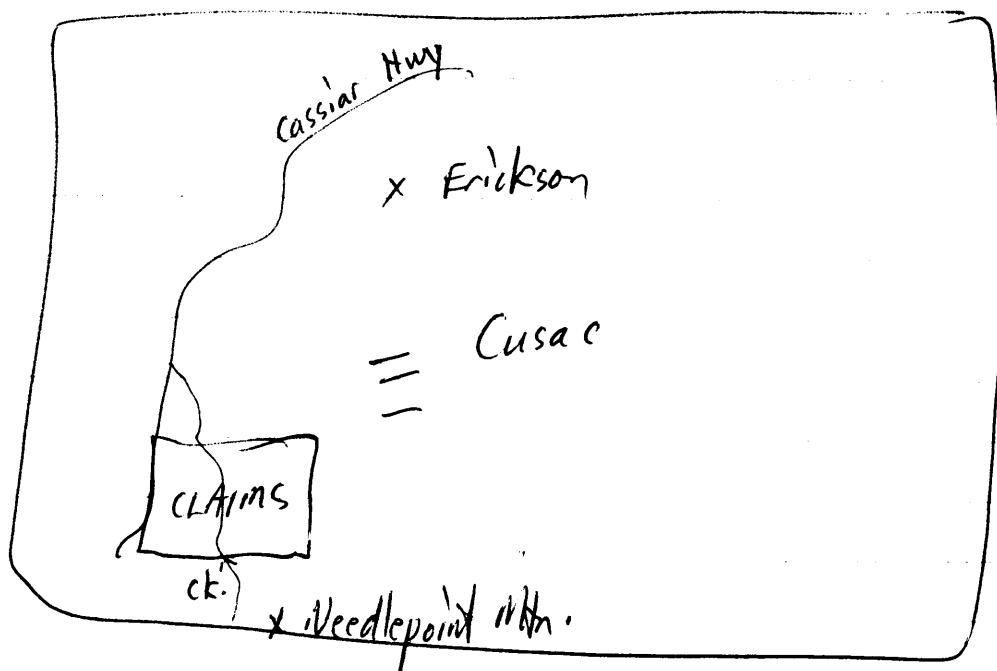 Cassiar Hwy
x Erickson
Cusac
CLAIMS
ck.
x Needlepoint Mtn.